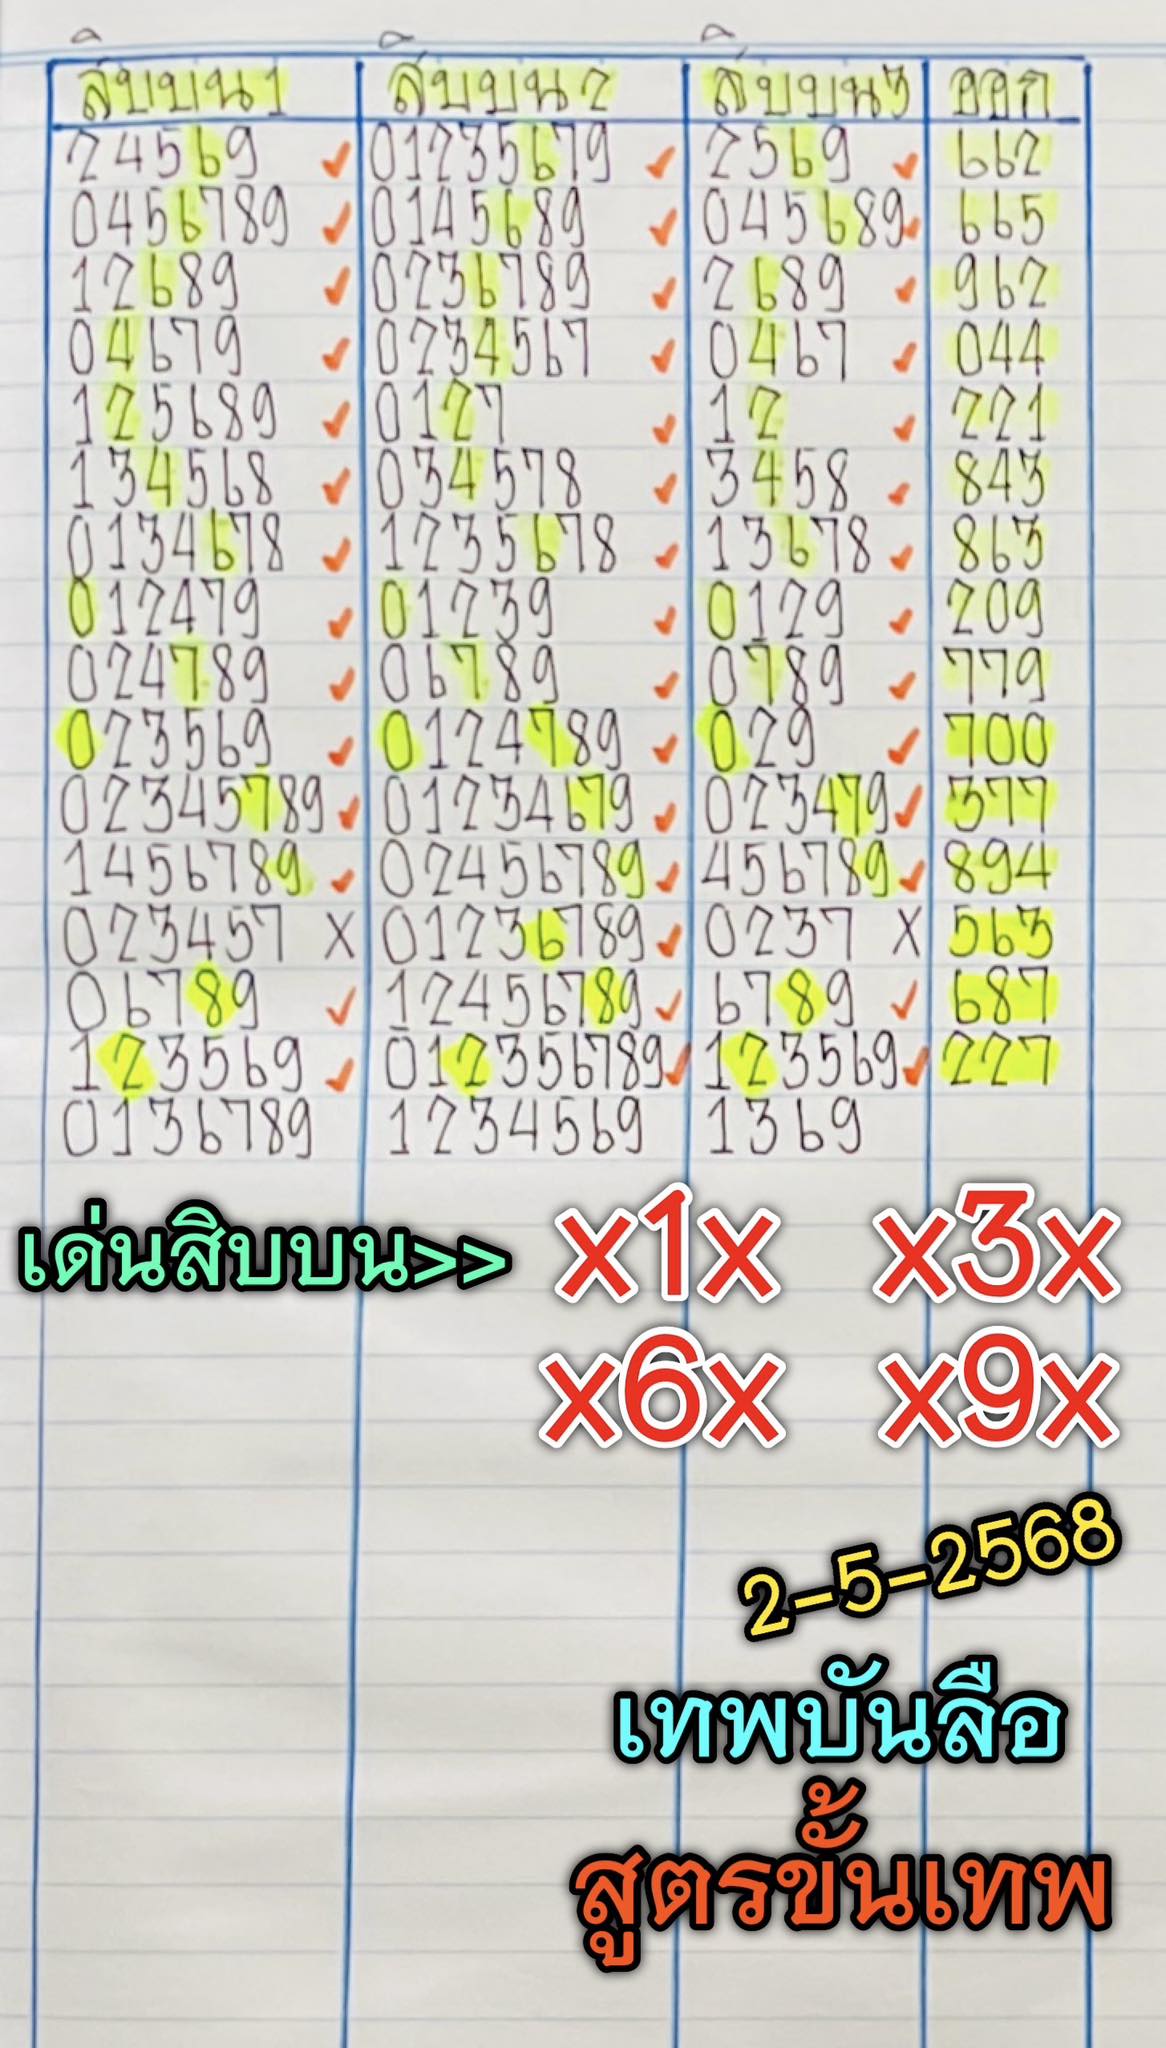 สิบบน1 สิบบน2 สิบบน3 ออก
24569 ✓ 01235679 ✓ 2569 ✓ 662
0456789 ✓ 0145689 ✓ 045689 ✓ 665
12689 ✓ 0236789 ✓ 2689 ✓ 962
04679 ✓ 0234567 ✓ 0467 ✓ 044
125689 ✓ 0127 ✓ 12 ✓ 221
134568 ✓ 034578 ✓ 3458 ✓ 843
0134678 ✓ 1235678 ✓ 13678 ✓ 863
012479 ✓ 01239 ✓ 0129 ✓ 209
024789 ✓ 06789 ✓ 0789 ✓ 779
023569 ✓ 0124789 ✓ 029 ✓ 700
02345789 ✓ 01234679 ✓ 023479 ✓ 377
1456789 ✓ 02456789 ✓ 456789 ✓ 894
023457 X 01236789 ✓ 0237 X 563
06789 ✓ 12456789 ✓ 6789 ✓ 687
123569 ✓ 012356789 ✓ 123569 ✓ 227
0136789 1234569 1369
เด่นสิบบน>> x1x x3x
x6x x9x
2-5-2568
เทพบันลือ
สูตรขั้นเทพ